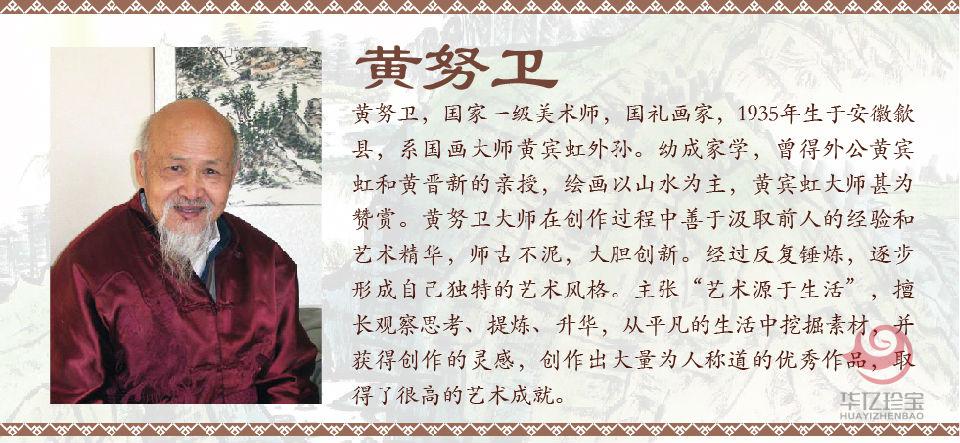 黄努卫
黄努卫，国家一级美术师，国礼画家，1935年生于安徽歙
县，系国画大师黄宾虹外孙。幼成家学，曾得外公黄宾
虹和黄晋新的亲授，绘画以山水为主，黄宾虹大师甚为
赞赏。黄努卫大师在创作过程中善于汲取前人的经验和
艺术精华，师古不泥，大胆创新。经过反复锤炼，逐步
形成自己独特的艺术风格。主张“艺术源于生活”，擅
长观察思考、提炼、升华，从平凡的生活中挖掘素材，并
获得创作的灵感，创作出大量为人称道的优秀作品，取
得了很高的艺术成就。
华亿珍宝
HUAYIZHENBAO